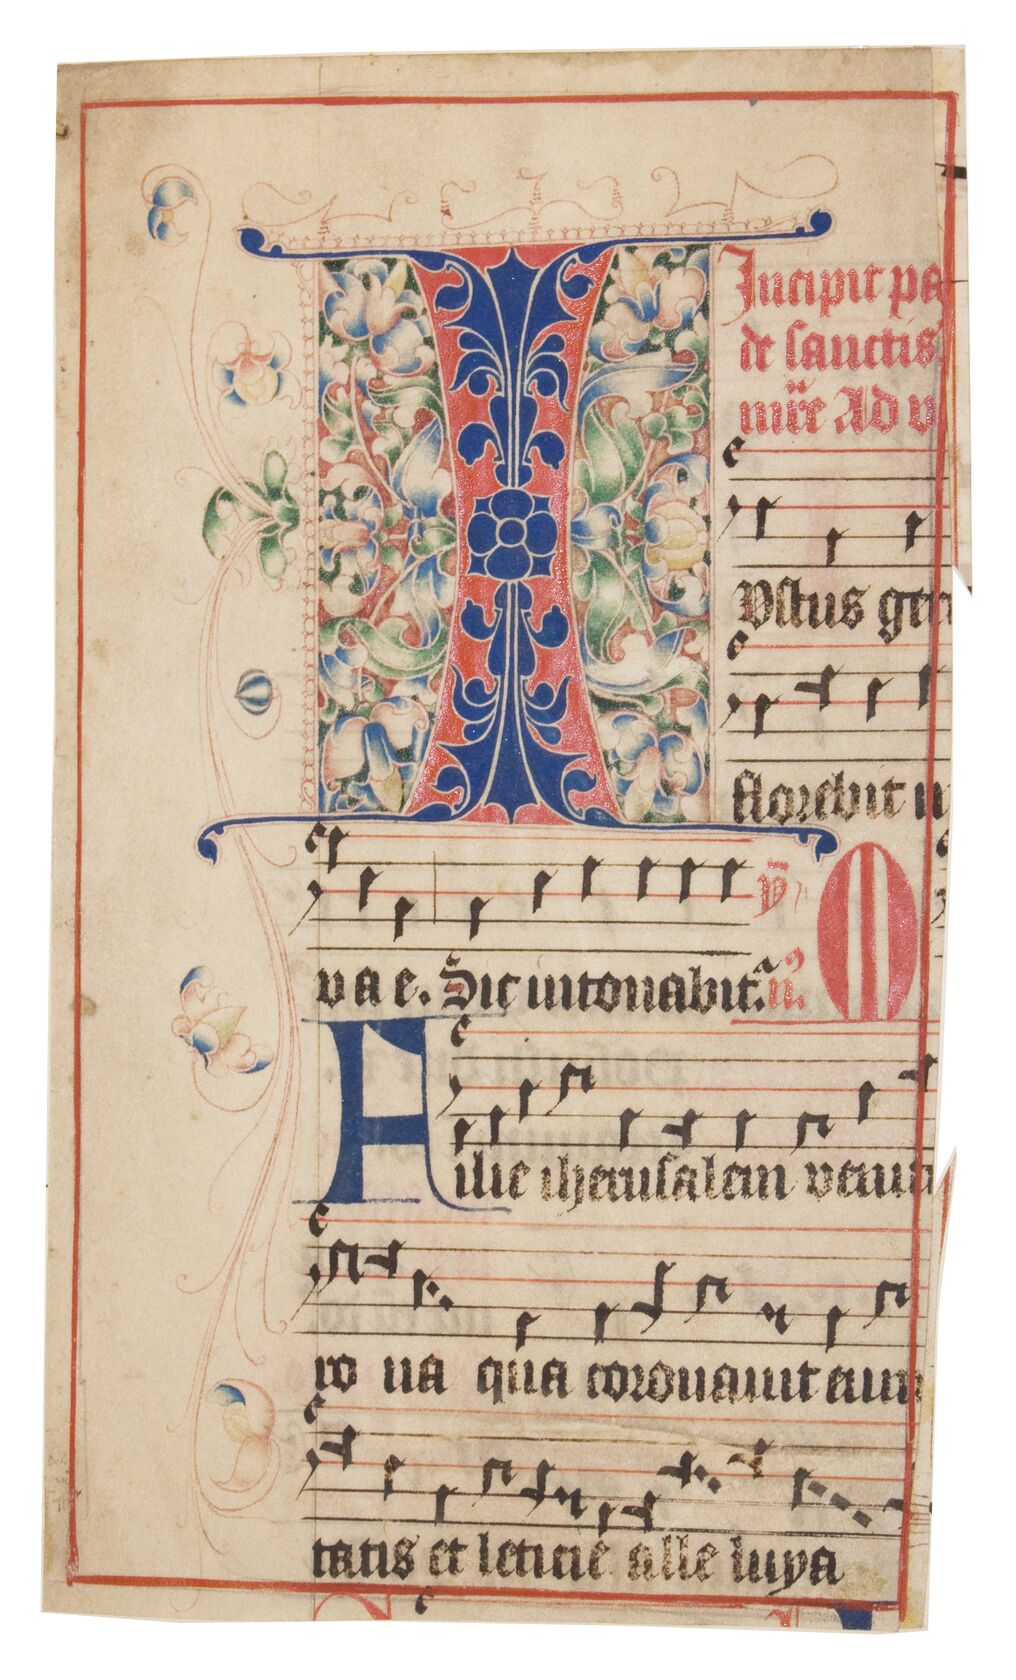 Incipit pa
de sanctis
Ad v
I ustus ger
florebit i
va e. Sic intonabit. ã ij.
F ilie iherusalem venu
ro na qua coronauit eum
tatis et leticie alle luya